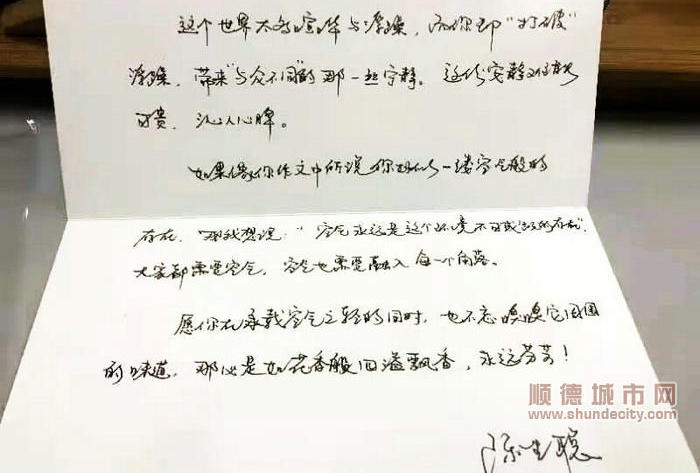 这个世界太多喧哗与浮躁，而你却“打破”
浮躁，带来“与众不同”的那一丝宁静。这份安静难能
可贵，沁人心脾。
如果像你作文中所说你好似一缕空气般的
存在，“那我想说：”空气永远是这个环境不可或缺的存在”，
大家都需要空气，空气也需要融入每一个角落。
愿你在承载空气之轻的同时，也不忘嗅嗅它周围
的味道，那必是如花香般四溢飘香，永远芬芳！
顺德城市网
www.shundecity.com